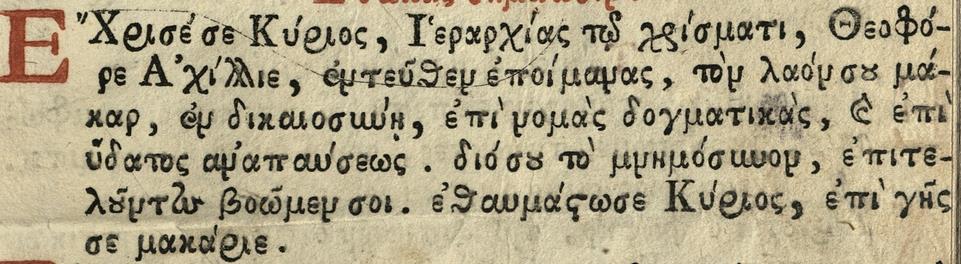 Ἔχρισέ σε Κύριος, Ἱεραρχίας τῷ χρίσματι, Θεοφό-
ρε Ἀχίλλιε, ἐντεῦθεν ἐποίμανας, τὸν λαόν σου μά-
καρ, ἐν δικαιοσύνῃ, ἐπὶ νομὰς δογματικὰς, καὶ ἐπὶ
ὕδατος ἀναπαύσεως. διό σου τὸ μνημόσυνον, ἐπιτε-
λοῦντων βοῶμεν σοι. ἐθαυμάστωσε Κύριος, ἐπὶ γῆς
σε μακάριε.